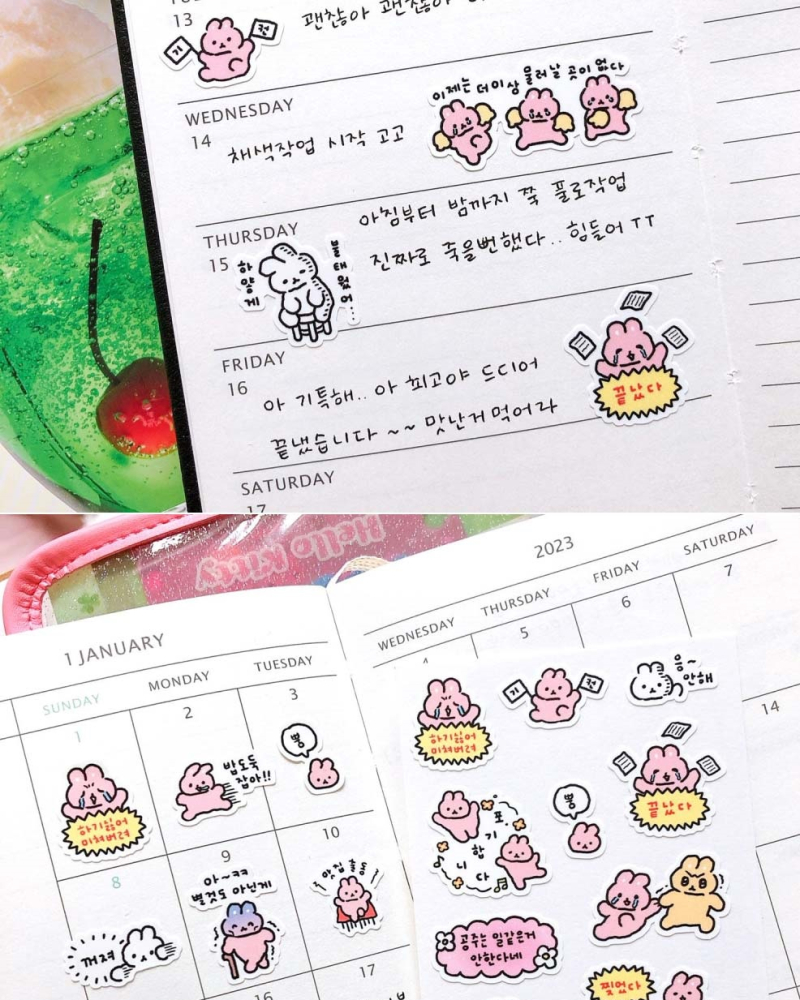 13
기 컷
괜찮아 괜찮아
WEDNESDAY
14
채색작업 시작 고고
이제는 더이상 물러날 곳이 없다
THURSDAY
15
하얗게
불태웠어...
아침부터 밤까지 쭉 플로작업
진짜로 죽을뻔했다.. 힘들어 TT
FRIDAY
16
아 기특해.. 아 최고야 드디어
끝냈습니다 ~~ 맛난거 먹어라
끝났다
SATURDAY
17
Hello Kitty
1 JANUARY
SUNDAY
MONDAY
TUESDAY
1
2
3
하기싫어
미쳐버려
밥도둑
잡아!!
뿅
8
9
10
꺼져
아~ㅋㅋ
별것도 아닌게
16
17
2023
WEDNESDAY
THURSDAY
FRIDAY
SATURDAY
4
5
6
7
14
하기싫어
미쳐버려
기 컷
응~
안해
포기합니다
뿅
끝났다
공주는 일같은거
안한다네
찢었다